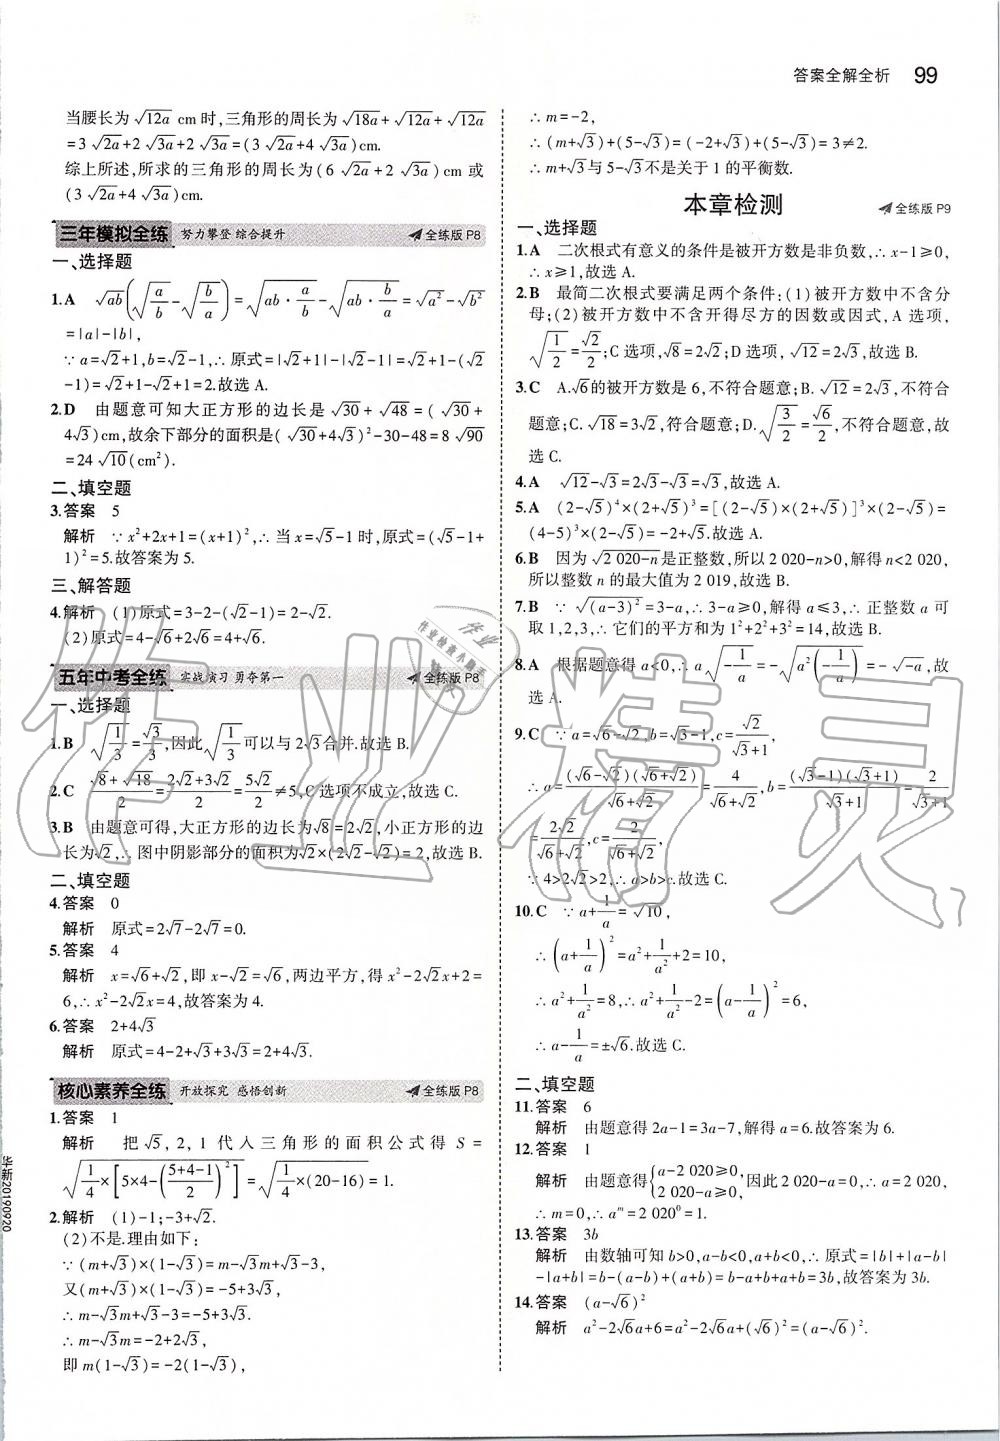 答案全解全析 99
当腰长为√12a cm时,三角形的周长为√18a+√12a+√12a
=3√2a+2√3a+2√3a=(3√2a+4√3a)cm.
综上所述,所求的三角形的周长为(6√2a+2√3a)cm或
(3√2a+4√3a)cm.
三年模拟全练 努力攀登 综合提升 全练版 P8
一、选择题
1.A √ab(√(a/b)-√(b/a))=√(ab·a/b)-√(ab·b/a)=√a²-√b²
=|a|-|b|,
∵a=√2+1,b=√2-1,∴原式=|√2+1|-|√2-1|=√2+1-(√2
-1)=√2+1-√2+1=2.故选A.
2.D 由题意可知大正方形的边长是√30+√48=(√30+
4√3)cm,故余下部分的面积是(√30+4√3)²-30-48=8√90
=24√10(cm²).
二、填空题
3.答案 5
解析 ∵x²+2x+1=(x+1)²,∴当x=√5-1时,原式=(√5-1+
1)²=5.故答案为5.
三、解答题
4.解析 (1)原式=3-2-(√2-1)=2-√2.
(2)原式=4-√6+2√6=4+√6.
五年中考全练 实战演习 勇夺第一 全练版 P8
一、选择题
1.B √(1/3)=√3/3,因此√(1/3)可以与2√3合并.故选B.
2.C (√8+√18)/2=(2√2+3√2)/2=5√2/2≠5,C选项不成立,故选C.
3.B 由题意可得,大正方形的边长为√8=2√2,小正方形的边
长为√2,∴图中阴影部分的面积为√2×(2√2-√2)=2,故选B.
二、填空题
4.答案 0
解析 原式=2√7-2√7=0.
5.答案 4
解析 x=√6+√2,即x-√2=√6,两边平方,得x²-2√2x+2=
6,∴x²-2√2x=4,故答案为4.
6.答案 2+4√3
解析 原式=4-2+√3+3√3=2+4√3.
核心素养全练 开放探究 感悟创新 全练版 P8
1.答案 1
解析 把√5,2,1代入三角形的面积公式得S=
√(1/4×[5×4-((5+4-1)/2)²])=√(1/4×(20-16))=1.
2.解析 (1)-1;-3+√2.
(2)不是.理由如下:
∵(m+√3)×(1-√3)=m-√3m+√3-3,
又(m+√3)×(1-√3)=-5+3√3,
∴m-√3m+√3-3=-5+3√3.
∴m-√3m=-2+2√3.
即m(1-√3)=-2(1-√3).
∴m=-2,
∴(m+√3)+(5-√3)=(-2+√3)+(5-√3)=3≠2.
∴m+√3与5-√3不是关于1的平衡数.
本章检测 全练版 P9
一、选择题
1.A 二次根式有意义的条件是被开方数是非负数,∴x-1≥0,
∴x≥1,故选A.
2.B 最简二次根式要满足两个条件:(1)被开方数中不含分
母;(2)被开方数中不含开得尽方的因数或因式,A选项,
√(1/2)=√2/2;C选项,√8=2√2;D选项,√12=2√3,故选B.
3.C A.√6的被开方数是6,不符合题意;B.√12=2√3,不符合
题意;C.√18=3√2,符合题意;D.√(3/2)=√6/2,不符合题意,故
选C.
4.A √12-√3=2√3-√3=√3,故选A.
5.A (2-√5)⁴×(2+√5)³=[(2-√5)×(2+√5)]³×(2-√5)=
(4-5)³×(2-√5)=-2+√5.故选A.
6.B 因为√(2 020-n)是正整数,所以2 020-n>0,解得n<2 020,
所以整数n的最大值为2 019,故选B.
7.B ∵√((a-3)²)=3-a,∴3-a≥0,解得a≤3,∴正整数a可
取1,2,3,∴它们的平方和为1²+2²+3²=14,故选B.
8.A 根据题意得a<0,∴a√(-1/a)=-√(a²(-1/a))=-√-a,故
选A.
9.C ∵a=√6-√2,b=√3-1,c=√2/(√3+1),
∴a=(√6-√2)(√6+√2)/(√6+√2)=4/(√6+√2),b=(√3-1)(√3+1)/(√3+1)=2/(√3+1)
=2√2/(√6+√2),c=2/(√6+√2),
∵4>2√2>2,∴a>b>c.故选C.
10.C ∵a+1/a=√10,
∴(a+1/a)²=a²+1/a²+2=10,
∴a²+1/a²=8,∴a²+1/a²-2=(a-1/a)²=6,
∴a-1/a=±√6.故选C.
二、填空题
11.答案 6
解析 由题意得2a-1=3a-7,解得a=6.故答案为6.
12.答案 1
解析 由题意得{a-2 020≥0, 2 020-a≥0,因此2 020-a=0,∴a=2 020,
∴m=0,∴aᵐ=2 020⁰=1.
13.答案 3b
解析 由数轴可知b>0,a-b<0,a+b<0,∴原式=|b|+|a-b|
-|a+b|=b-(a-b)+(a+b)=b-a+b+a+b=3b,故答案为3b.
14.答案 (a-√6)²
解析 a²-2√6a+6=a²-2√6a+(√6)²=(a-√6)².
华新20190920
作业精灵
作业
作业检查小助手